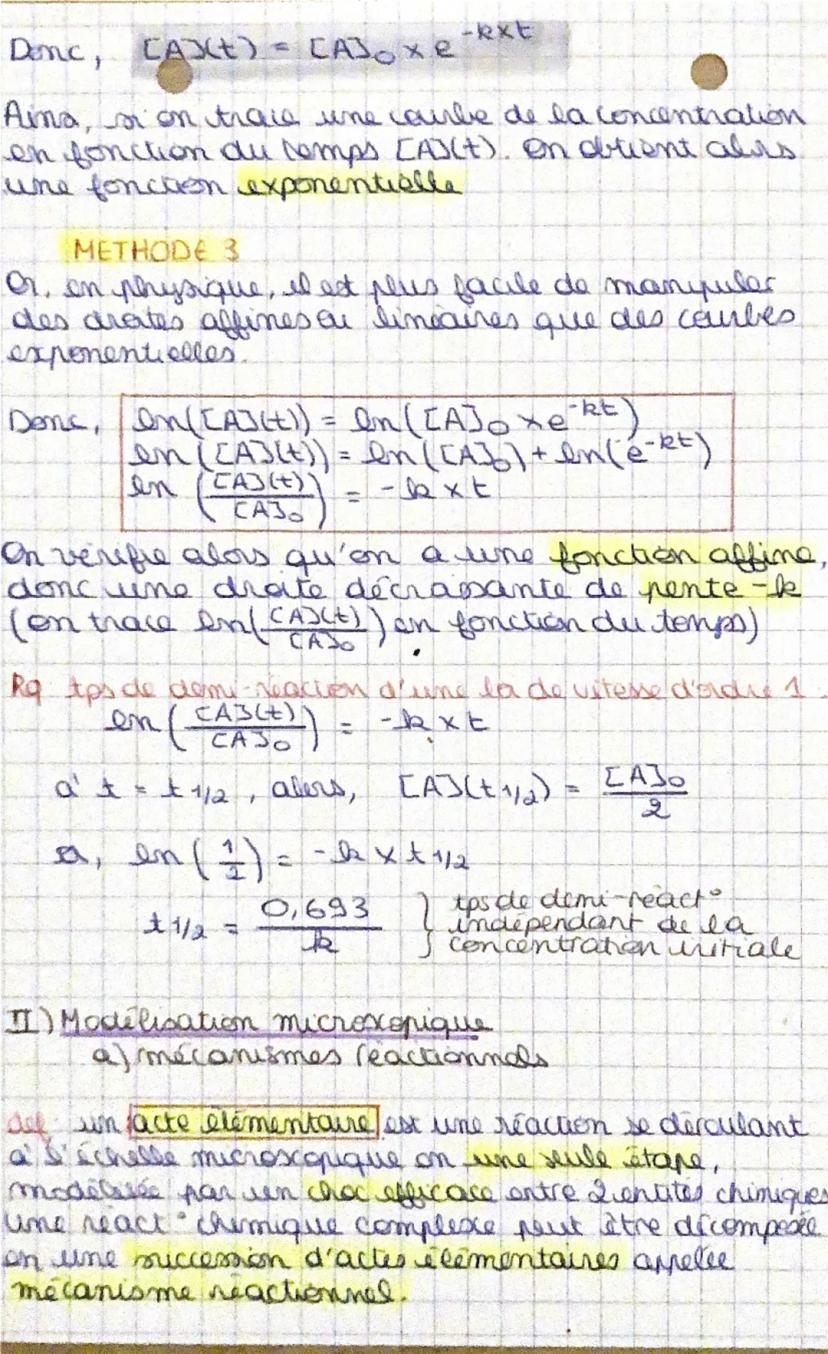 Donc, [A](t) = [A]₀ × e^(-k×t)
Ainsi, si on trace une courbe de la concentration
en fonction du temps [A](t). On obtient alors
une fonction exponentielle
METHODE 3
Or, en physique, il est plus facile de manipuler
des droites affines ou linéaires que des courbes
exponentielles.
Donc, ln([A](t)) = ln([A]₀ × e^(-kt))
ln([A](t)) = ln([A]₀) + ln(e^(-kt))
ln([A](t)/[A]₀) = -k × t
On vérifie alors qu'on a une fonction affine,
donc une droite décroissante de pente -k
(on trace ln([A](t)/[A]₀) en fonction du temps)
Rq tps de demi-réaction d'une loi de vitesse d'ordre 1.
ln([A](t)/[A]₀) = -k × t
à t = t 1/2, alors, [A](t 1/2) = [A]₀/2
ln(1/2) = -k × t 1/2
t 1/2 = 0,693/k } tps de demi-réact°
indépendant de la
concentration initiale
II) Modélisation microscopique
a) mécanismes réactionnels
def un acte élémentaire est une réaction se déroulant
à l'échelle microscopique en une seule étape,
modélisée par un choc efficace entre 2 entités chimiques
Une réact° chimique complexe peut être décomposée
en une succession d'actes élémentaires appelée
mécanisme réactionnel.